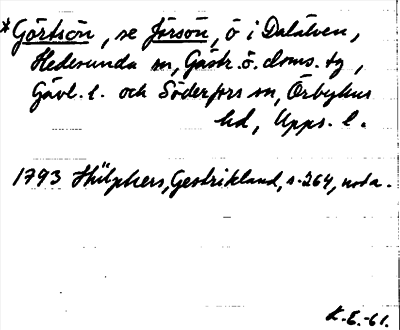 *Görtsön, se Jörsön, ö i Dalälven,
Hedesunda sn, Gästr. ö. doms. tg,
Gävl. l. och Söderfors sn, Örbyhus
hd, Upps. l.
1793 Hülphers, Gestrikland, s. 264, nota.
K.E.-61.